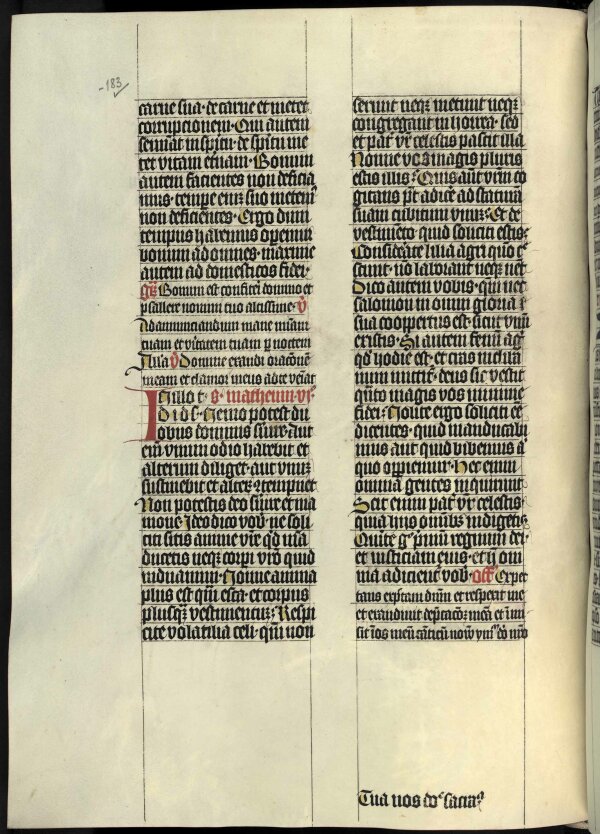 183
carne sua · de carne et metet
corrupcionem · Qui autem
seminat in spiritu · de spiritu me
tet vitam eternam · Bonum
autem facientes non deficia
mus · tempore enim suo metemus
non deficientes · Ergo dum
tempus habemus operemur
bonum ad omnes · maxime
autem ad domesticos fidei ·
Bonum est confiteri domino et
psallere nomini tuo altissime · V
Ad annunciandum mane misericordiam
tuam et veritatem tuam per noctem
Alla V Domine exaudi orationem
meam et clamor meus ad te veniat
In illo t · s · matheum · vi ·
D i d s · Nemo potest du
obus dominis servire · aut
enim unum odio habebit et
alterum diliget · aut unum
sustinebit et alterum contempnet
Non potestis deo servire et ma
mone · Ideo dico vobis · ne soli
citi sitis anime vestre quid man
ducetis neque corpori vestro quid
induamini · Nonne anima
plus est quam esca · et corpus
plusquam vestimentum · Respi
cite volatilia celi · quoniam non
serunt neque metunt neque
congregant in horrea · sed
et pater vester celestis pascit illa
Nonne vos magis pluris
estis illis · Quis autem vestrum co
gitans potest adicere ad staturam
suam cubitum unum · Et de
vestimento quid soliciti estis ·
Considerate lilia agri quomodo
crescunt · non laborant neque nent
Dico autem vobis · quoniam nec
salomon in omni gloria
sua coopertus est · sicut unum
ex istis · Si autem fenum agri
quod hodie est · et cras in cliba
num mittitur · deus sic vestit
quanto magis vos minime
fidei · Nolite ergo soliciti esse
dicentes · quid manducabi
mus aut quid bibemus aut
quo operiemur · Hec enim
omnia gentes inquirunt
Scit enim pater vester celestis
quia hiis omnibus indigetis
Querite ergo primum regnum dei ·
et iusticiam eius · et hec om
nia adicientur vobis · Off Expec
tans expectavi dominum et respexit me
et exaudivit deprecationem meam et immi
sit in os meum canticum novum ymnum deo nostro
Tua nos domine sacra